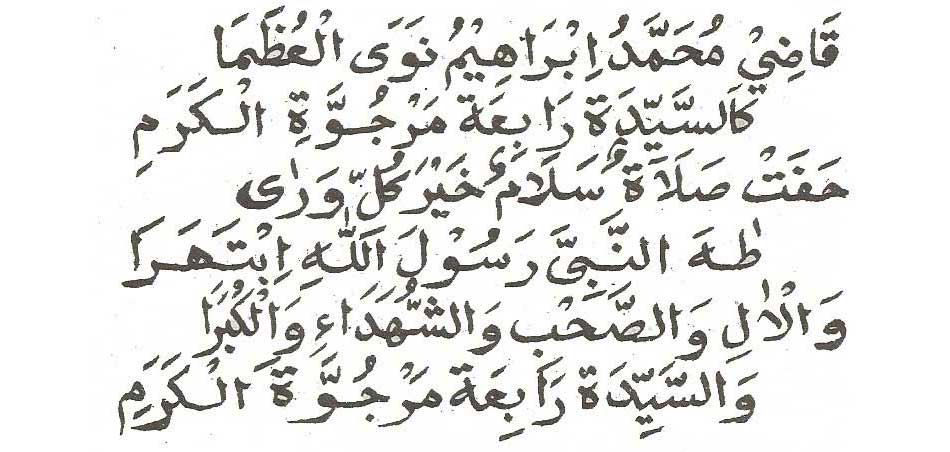 قَاضِيْ مُحَمَّدُ اِبْرَاهِيْمُ نَوَى الْعُظَمَا
كَالسَّيِّدَةِ رَابِعَة مَرْجُوَّةِ الْكَرَمِ
حَفَتْ صَلَاةُ سَلَامُ خَيْرَ كُلِّ وَرٰى
طٰهَ النَّبِىَّ رَسُوْلَ اللّٰهِ اِبْتَهَرَا
وَالْاٰلِ وَالصَّحْبِ وَالشُّهَدَاءِ وَالْكُبَرَا
وَالسَّيِّدَة رَابِعَة مَرْجُوَّة الْكَرَمِ